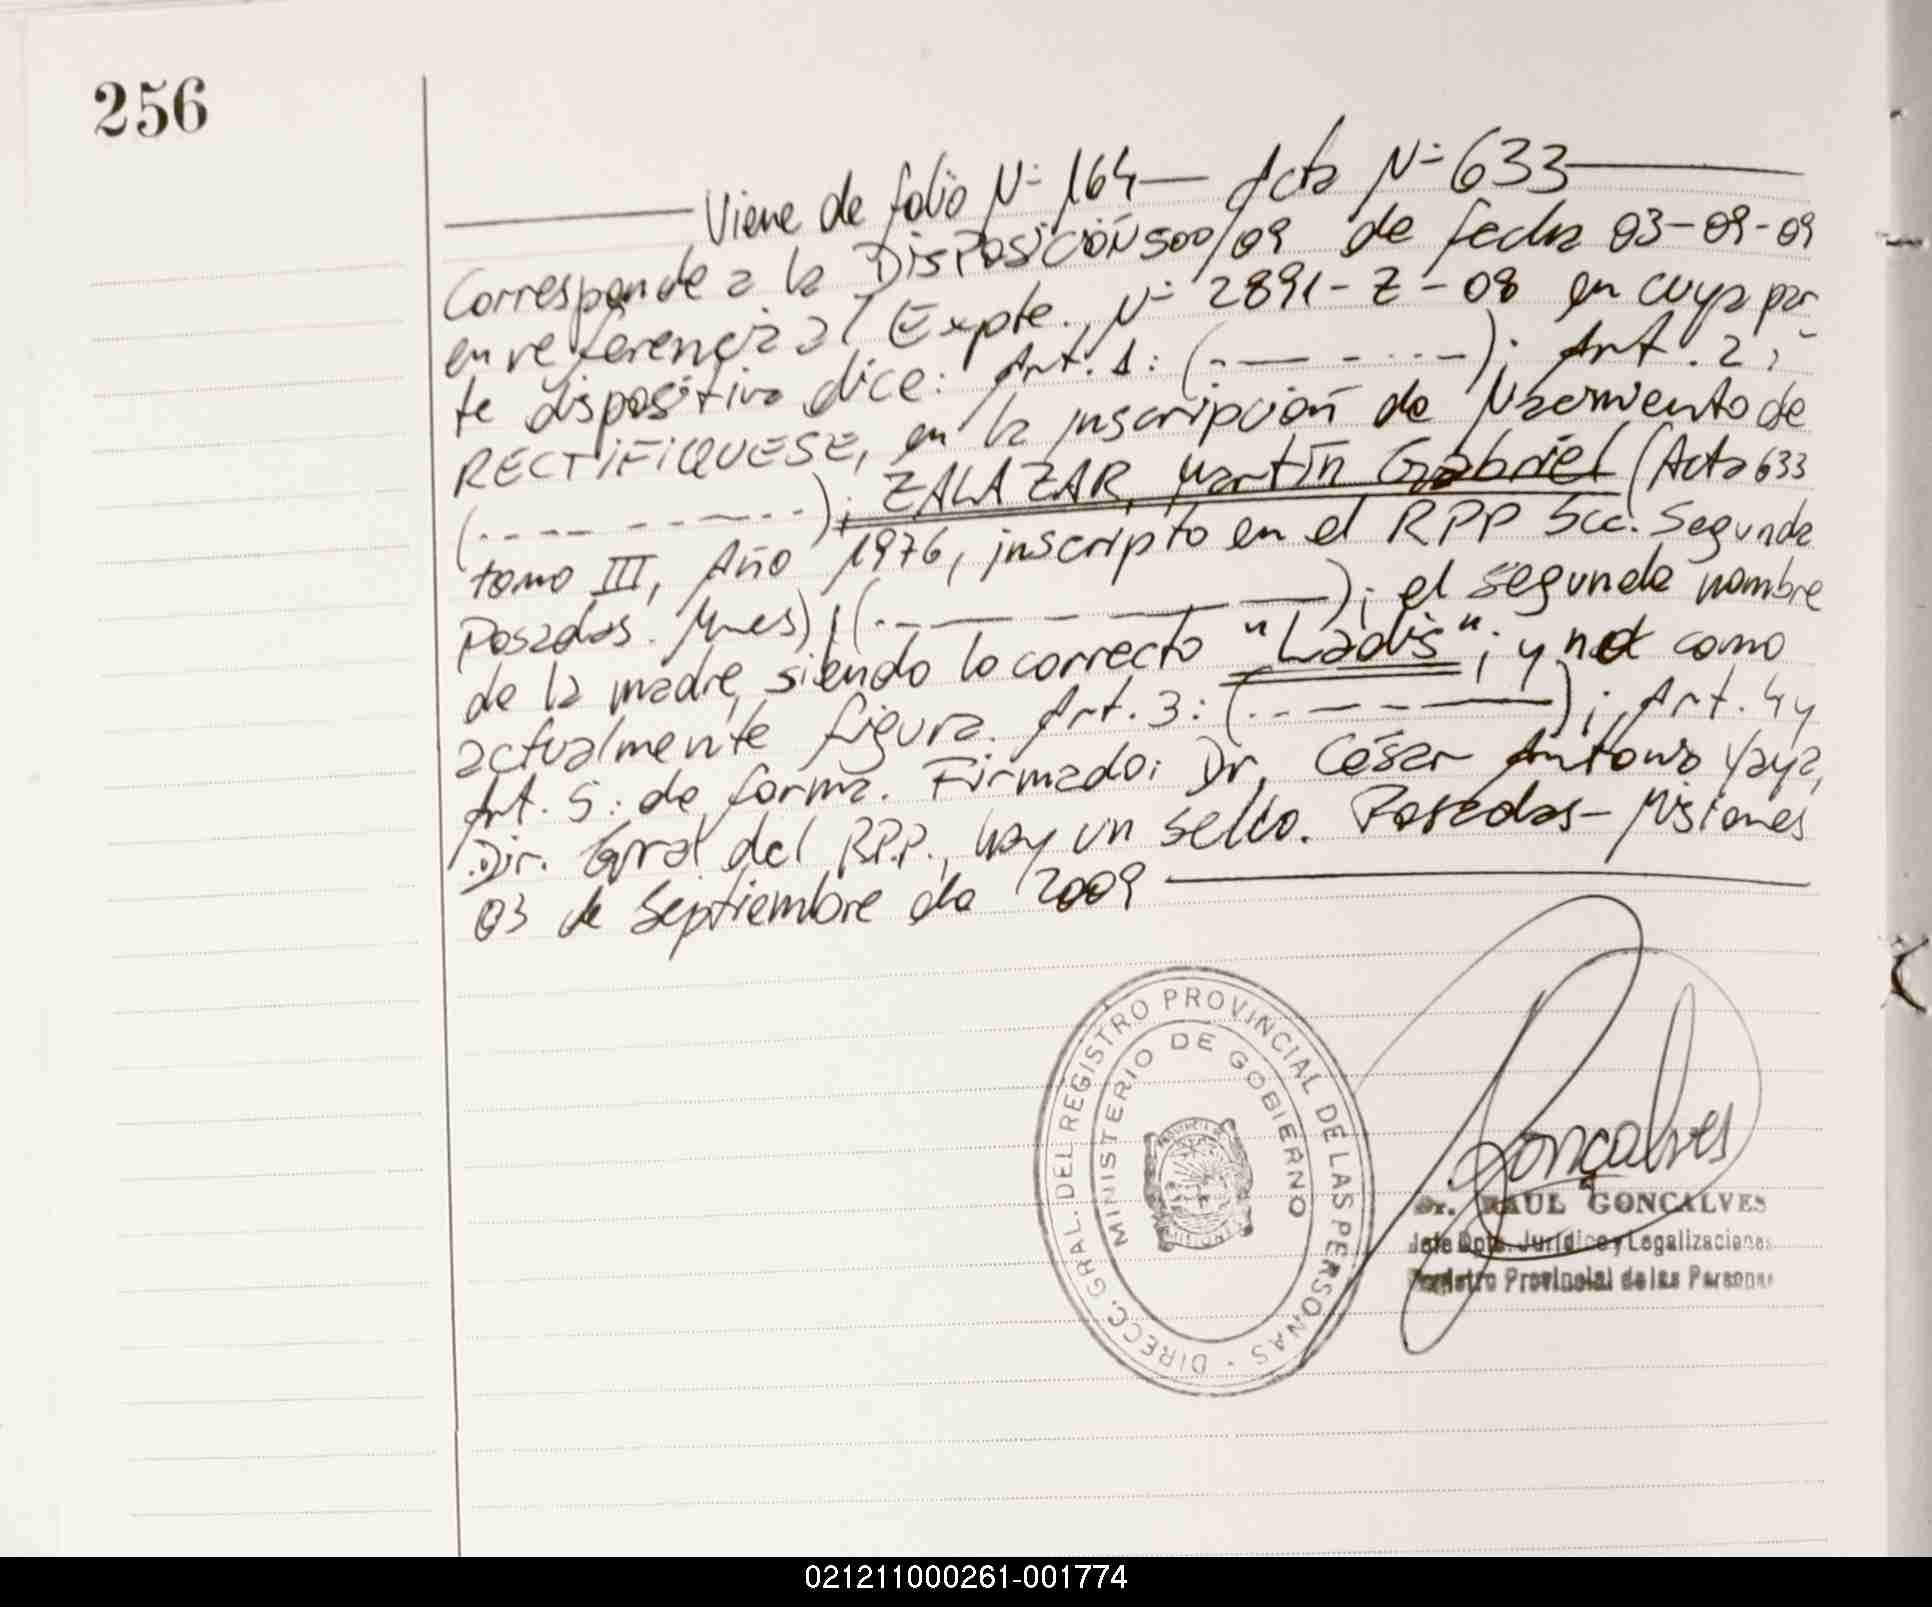 256
Viene de folio N- 164 — Acta N- 633
Corresponde a la DisPosiCiÓN 500/09 de fecha 03-09-09
en referencia al Expte. N- 2891-Z-08 en cuya par-
te dispositiva dice: Art. 1: (.— — - . . . —); Art. 2;
RECTIFIQUESE, en la inscripción de Nacimiento de
(. - - - - - — - . . .); ZALAZAR, Martín Gabriel (Acta 633
tomo III, Año 1976, inscripto en el RPP Scc. Segunda
Posadas. Mnes), (. - — — — — —); el segundo nombre
de la madre, siendo lo correcto "Ladis"; y no como
actualmente figura. Art. 3: (. . — — - — —); Art. 4 y
Art. 5: de forma. Firmado: Dr. César Antonio Yaya,
Dir. Gral del RP.P., hay un sello. Posadas - Misiones
03 de Septiembre de 2009
DIRECC. GRAL. DEL REGISTRO PROVINCIAL DE LAS PERSONAS -
MINISTERIO DE GOBIERNO
PROVINCIA DE
MISIONES
Gonçalves
Dr. RAUL GONCALVES
Jefe Dpto. Jurídico y Legalizaciones
Registro Provincial de las Personas
021211000261-001774